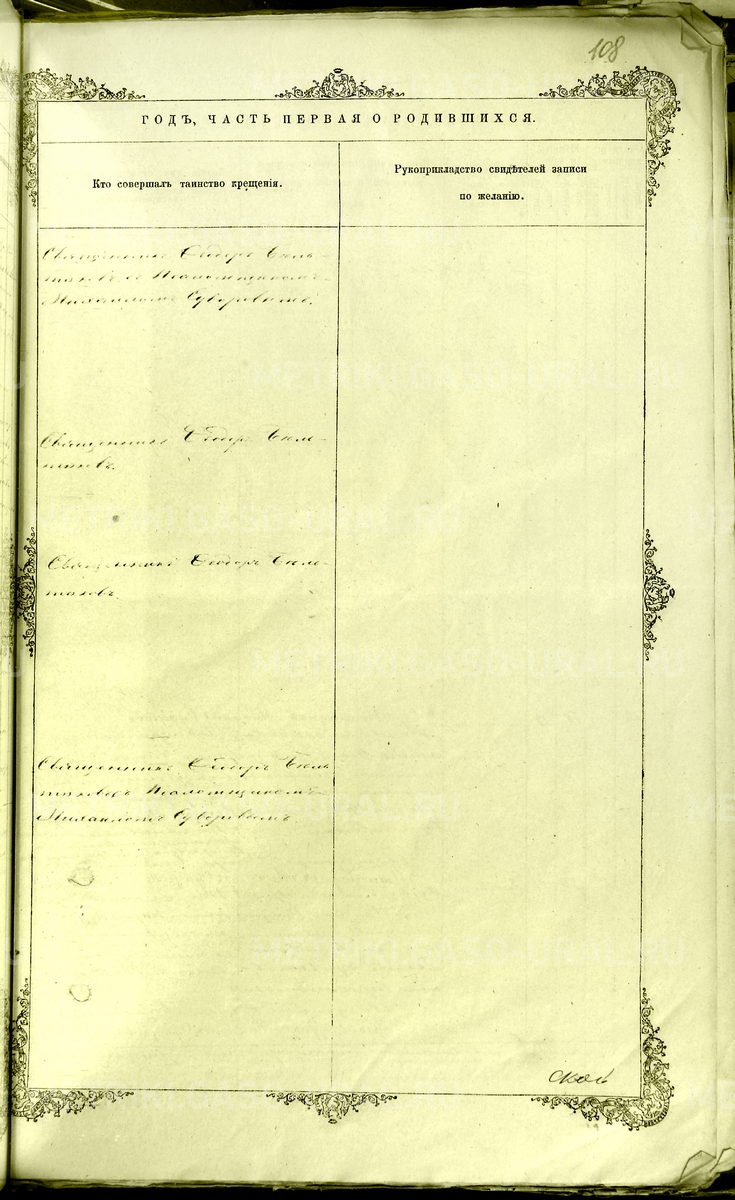 108
ГОДЪ, ЧАСТЬ ПЕРВАЯ О РОДИВШИХСЯ.
Кто совершалъ таинство крещенія.
Рукоприкладство свидѣтелей записи
по желанію.
Священникъ Ѳеодоръ
съ Псаломщикомъ
Михаиломъ Суворовымъ.
Священникъ Ѳеодоръ
Священникъ Ѳеодоръ
Священникъ Ѳеодоръ
Псаломщикомъ
Михаиломъ Суворовымъ
ской
METRIKI.GASO-URAL.RU